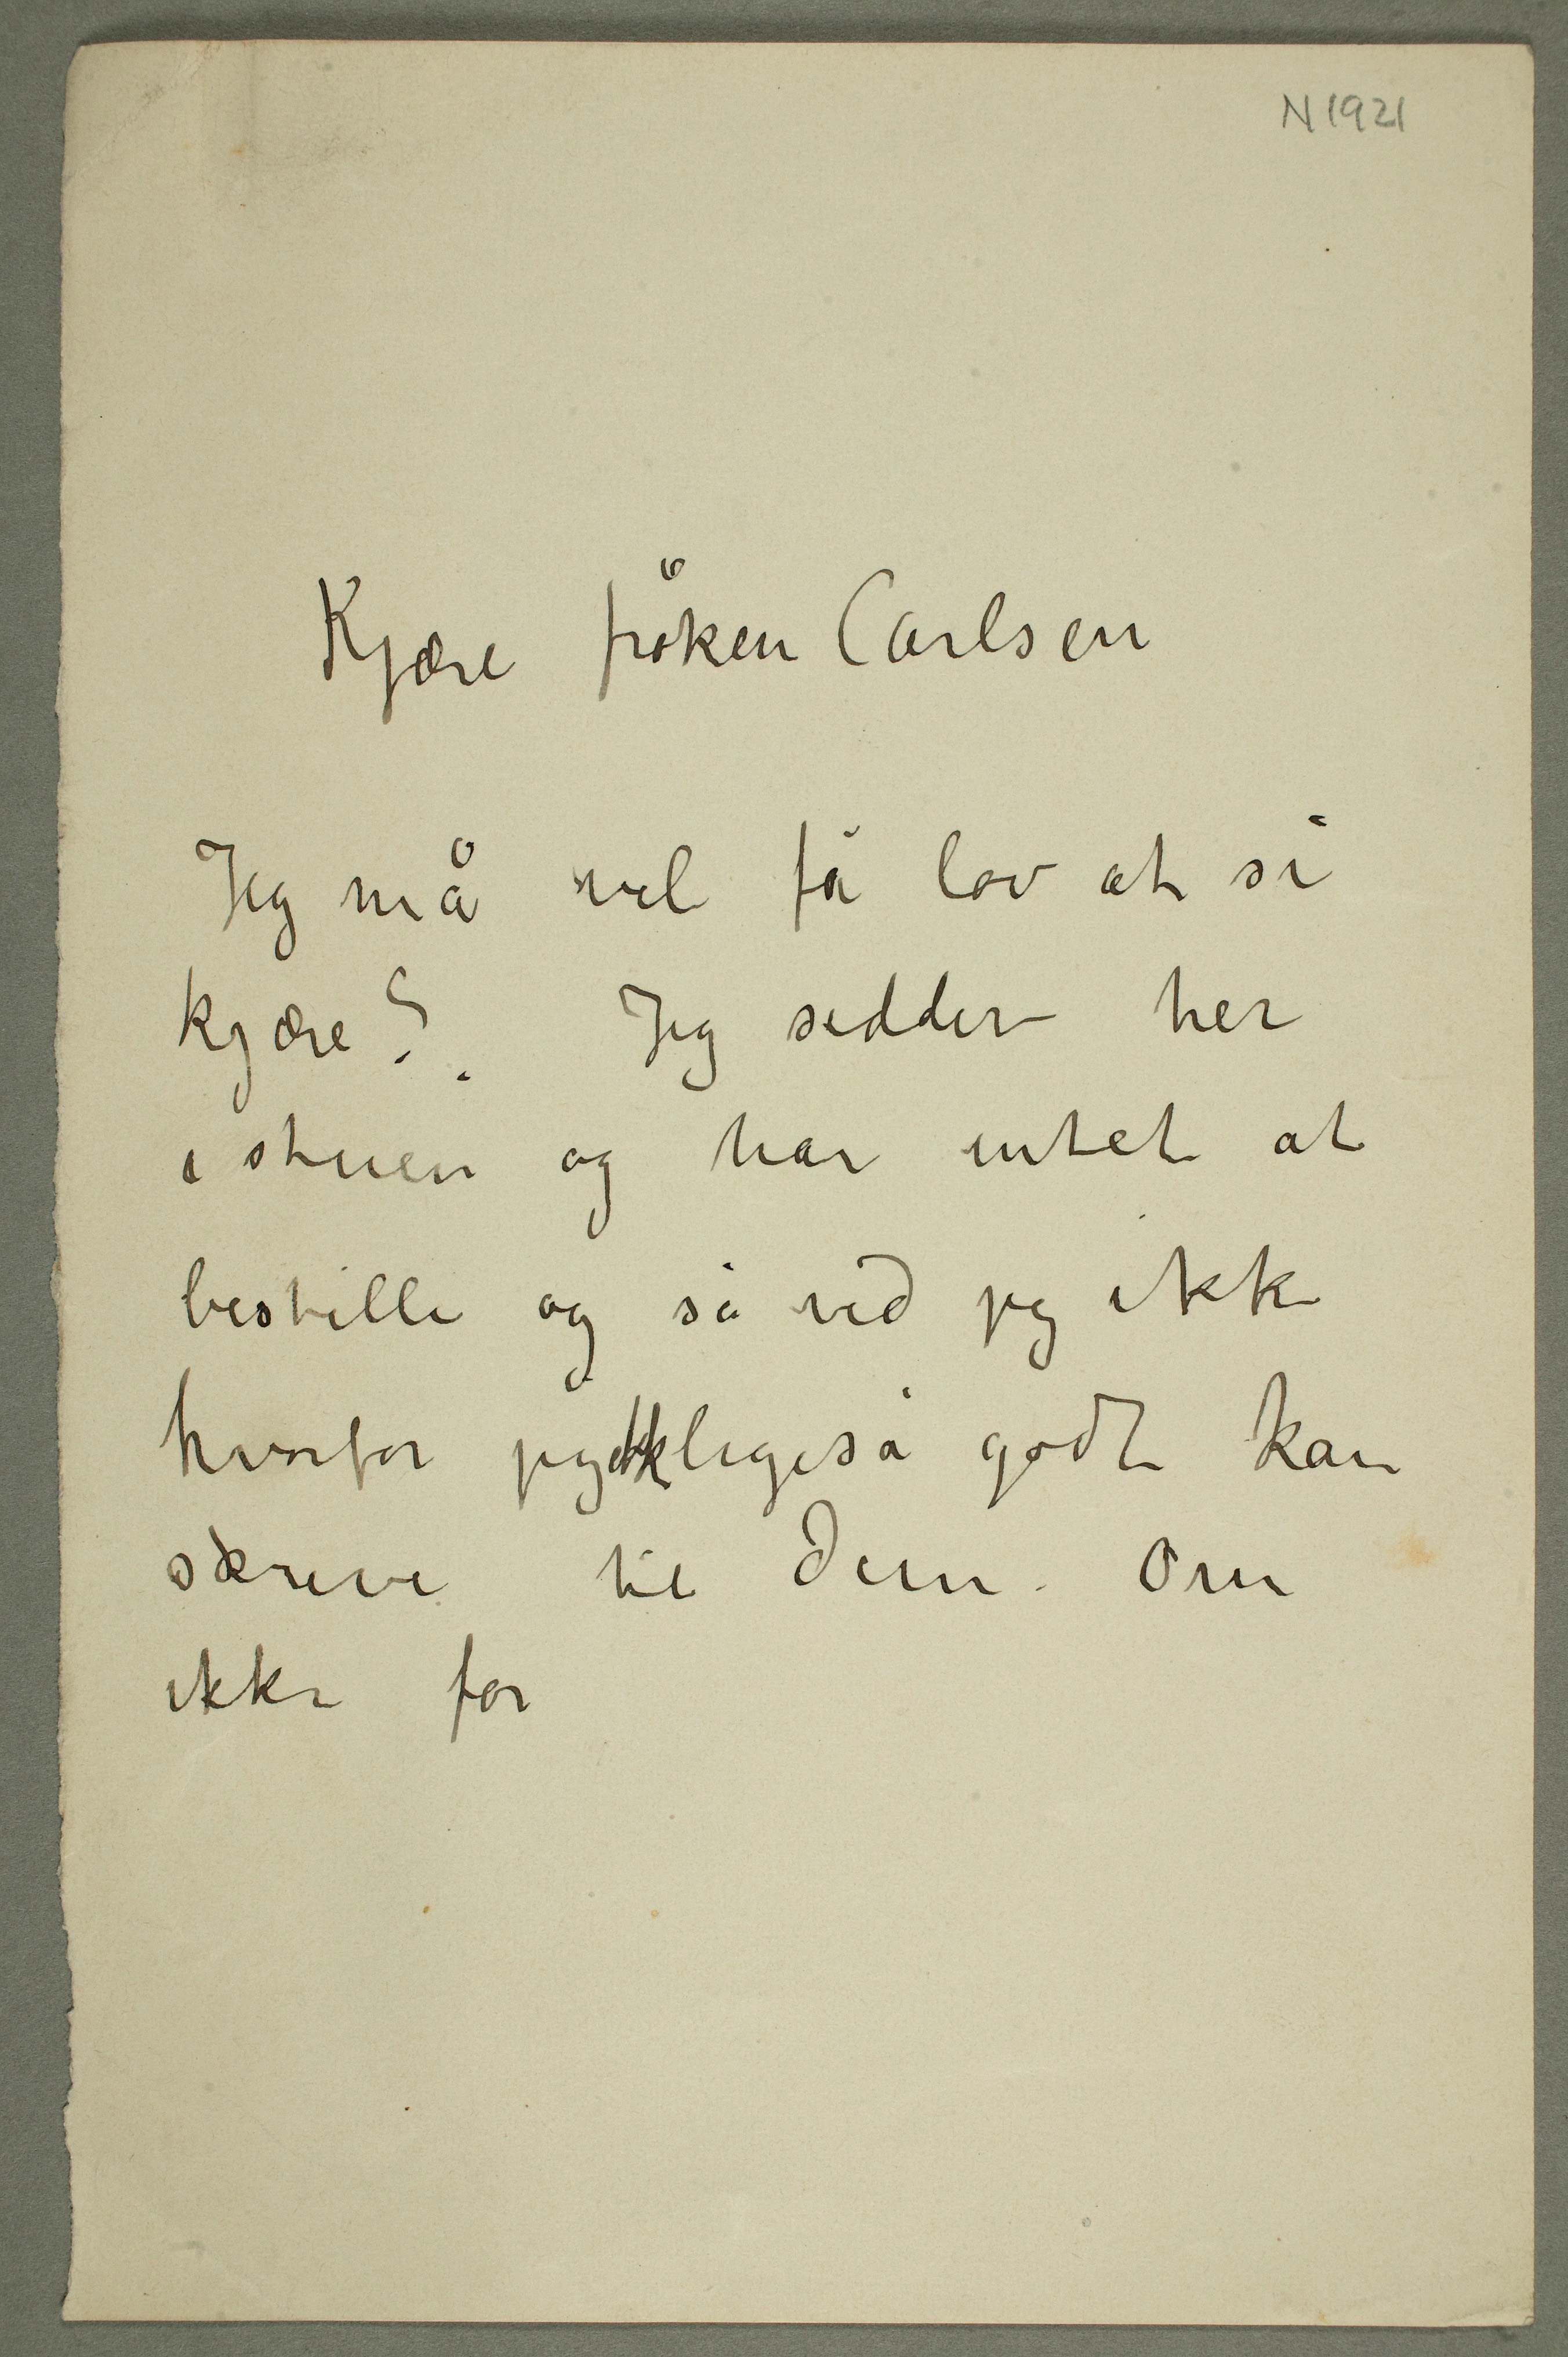 N 1921
Kjære frøken Carlsen
Jeg må vel få lov at si
kjære?. Jeg sidder her
i stuen og har intet at
bestille og så ved jeg ikke
hvorfor jeg ikke ligeså godt kan
skrive til Dem. Om
ikke for